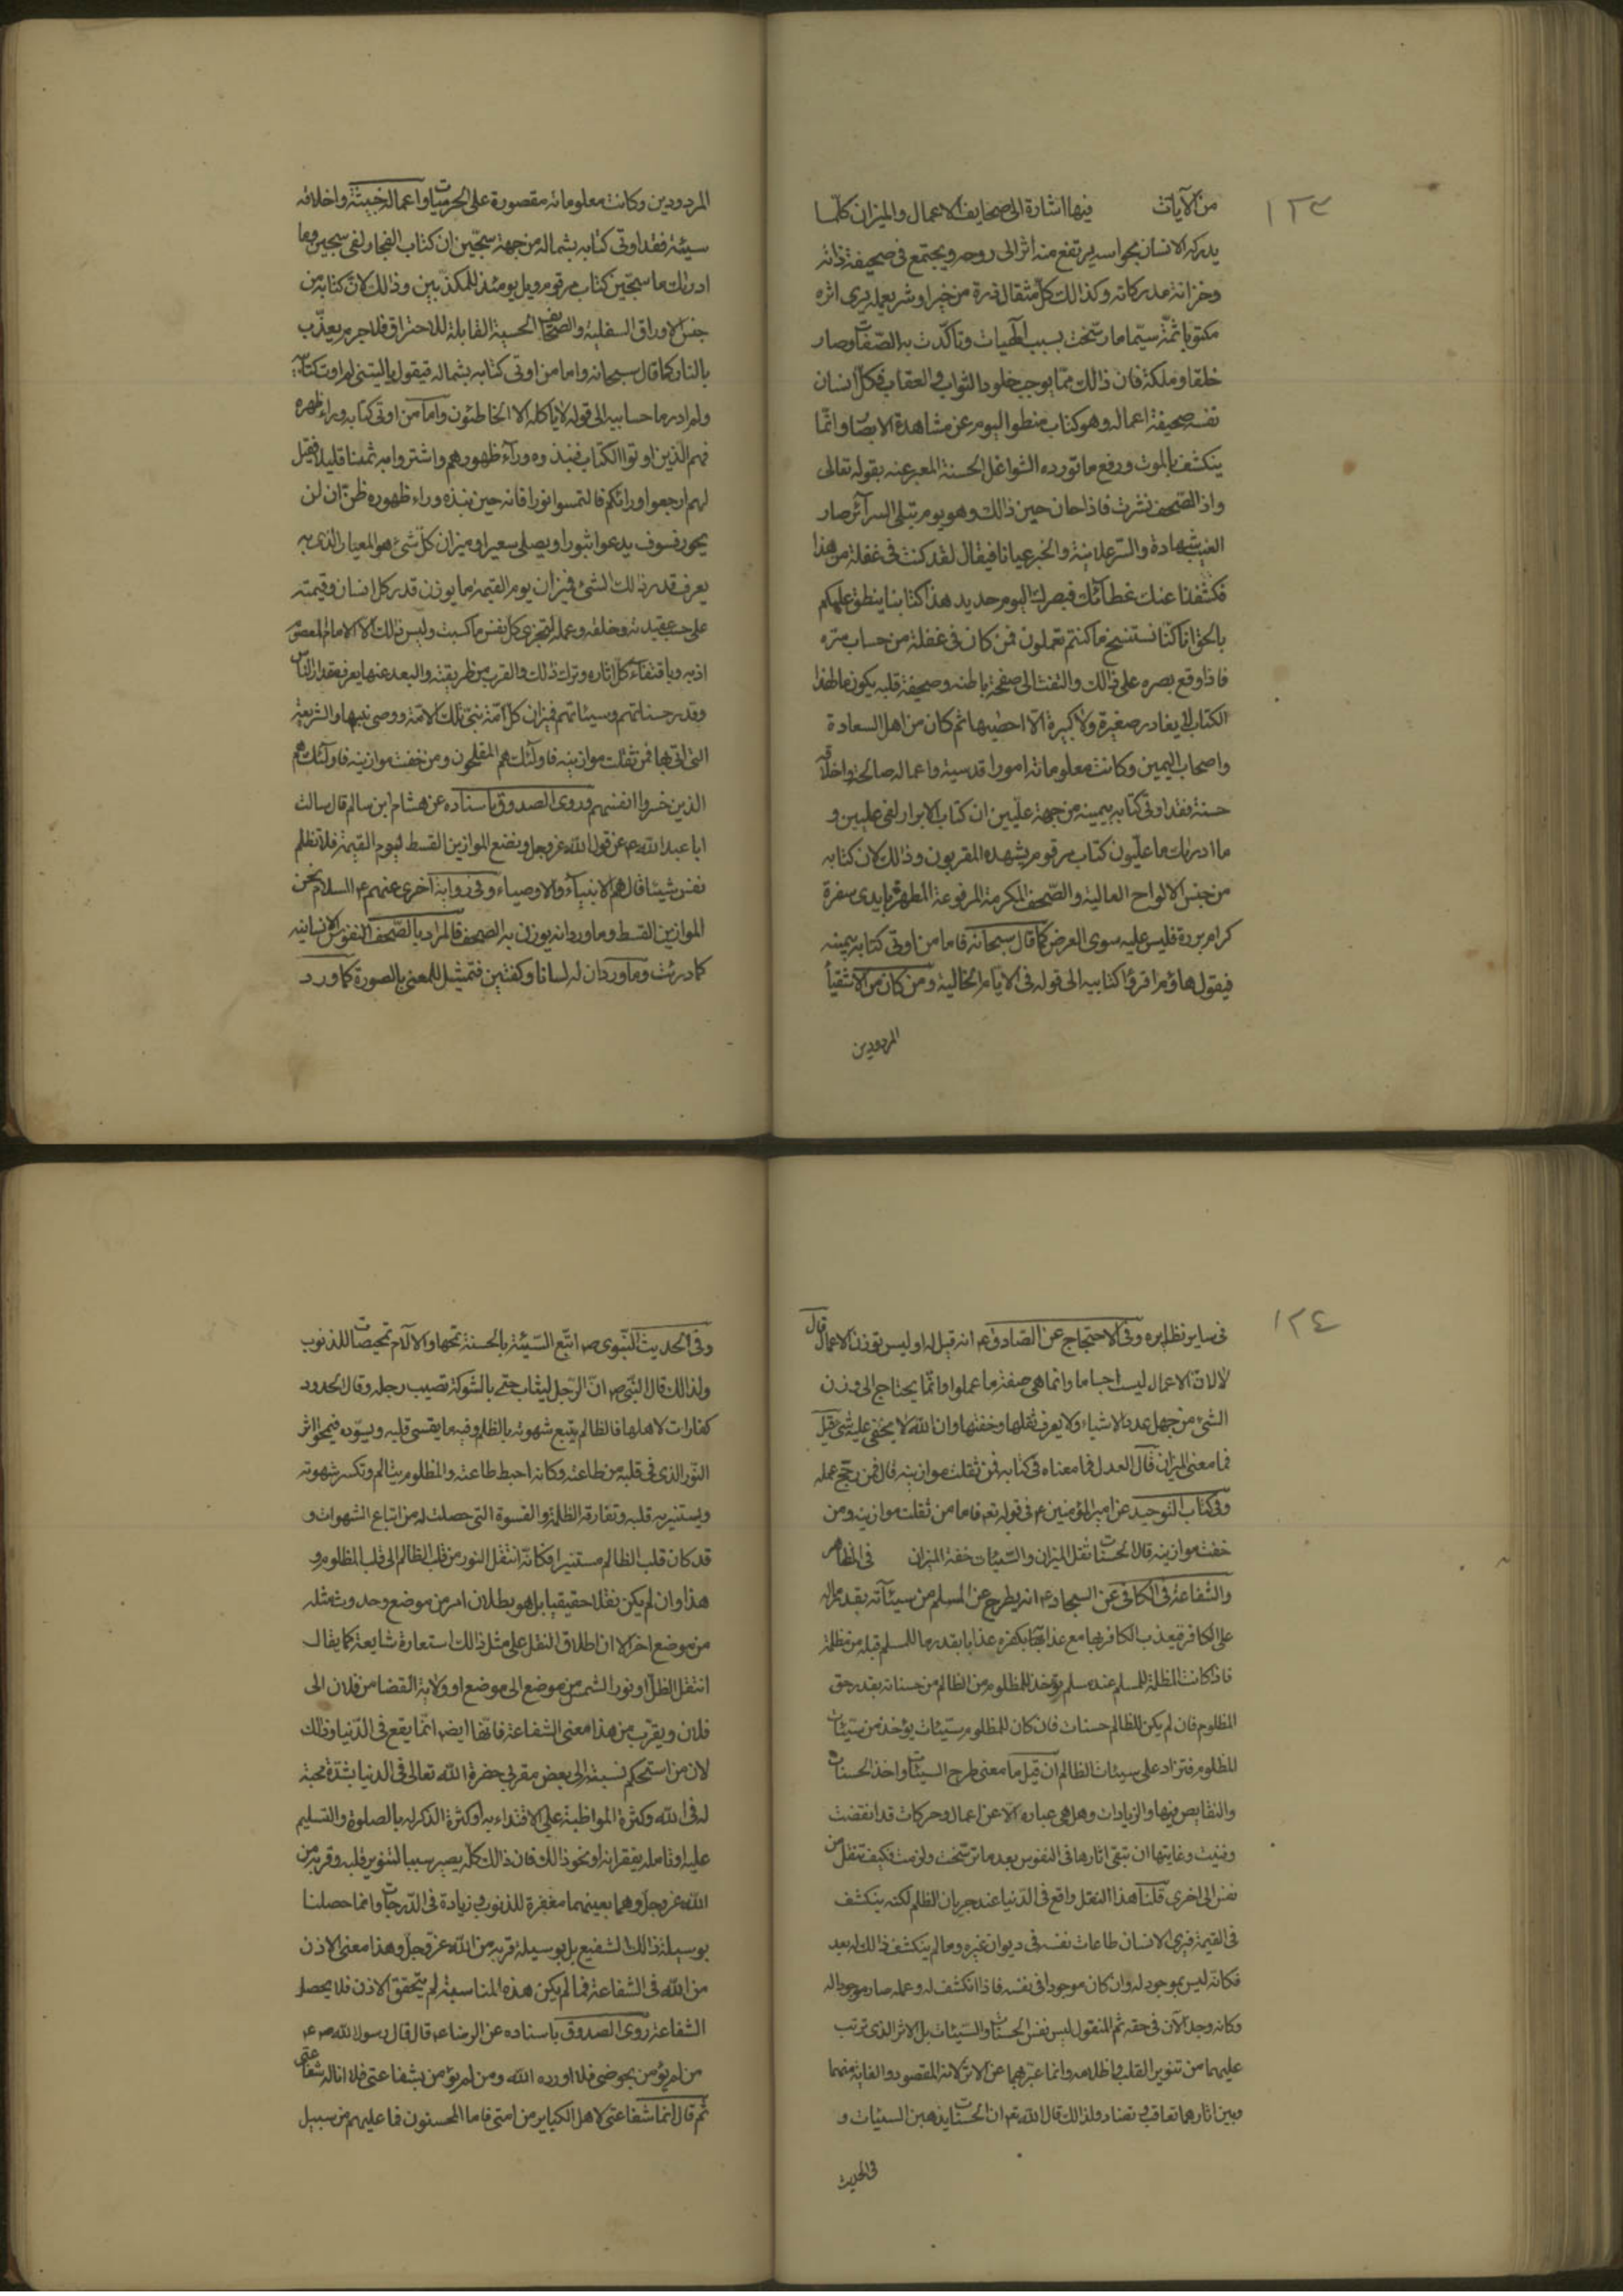 ١٢٣
من الآيات فيها اشارة الى صحايف الاعمال والميزان كلما
يدركه الانسان بحواسه يرتفع منه اثر الى روحه ويجتمع في صحيفة ذاته
وخزانة مدركاته وكذالك كل مثقال ذرة من خير او شر يعمله يرى اثره
مكتوبا ثمة سيما ما رسخت بسبب الهيات وتاكدت به الصفات وصار
خلقا وملكة فان ذالك مما يوجب خلود الثواب والعقاب فكل انسان
نفسه صحيفة اعماله وهو كتاب منطو اليوم عن مشاهدة الابصار وانما
ينكشف بالموت ورفع ما تورده الشواغل الحسنة المعبر عنه بقوله تعالى
واذ الصحف نشرت فاذا حان حين ذالك وهو يوم تبلى السرآئر صار
الغيب شهادة والسر علانية والخبر عيانا فيقال لقد كنت في غفلة من هذا
فكشفنا عنك غطائك فبصرك اليوم حديد هذا كتابنا ينطق عليكم
بالحق انا كنا نستنسخ ما كنتم تعملون فمن كان في غفلة من حساب سره
فاذا وقع بصره على ذالك والتفت الى صفحة باطنه وصحيفة قلبه يكون ما لهذا
الكتاب لا يغادر صغيرة ولا كبيرة الا احصيها ثم كان من اهل السعادة
واصحاب اليمين وكانت معلوماته امورا قدسية واعماله صالحة واخلاقه
حسنة فقد اوتى كتابه بيمينه من جهة عليين ان كتاب الابرار لفى عليين و
ما ادريك ما عليون كتاب مرقوم يشهده المقربون وذالك لان كتابه
من جنس الالواح العالية والصحف المكرمة المرفوعة المطهرة بايدى سفرة
كرام بررة فليس عليه سوى العرض كما قال سبحانه فاما من اوتى كتابه بيمينه
فيقول هاؤم اقرؤا كتابيه الى قوله في الايام الخالية ومن كان من الاشقياء
المردودين
المردودين وكانت معلوماته مقصورة على الجرميات واعماله خبيثة واخلاقه
سيئة فقد اوتى كتابه بشماله من جهة سجين ان كتاب الفجار لفى سجين وما
ادريك ما سجين كتاب مرقوم ويل يومئذ للمكذبين وذالك لان كتابه من
جنس الاوراق السفلية والصحايف الحسية القابلة للاحتراق فلا جرم يعذب
بالنار كما قال سبحانه واما من اوتى كتابه بشماله فيقول ياليتنى لم اوت كتابيه
ولم ادر ما حسابيه الى قوله لا ياكله الا الخاطئون واما من اوتى كتابه وراء ظهره
فهم الذين اوتوا الكتاب فنبذوه ورآء ظهورهم واشتروا به ثمنا قليلا فقيل
لهم ارجعوا ورائكم فالتمسوا نورا فانه حين نبذه وراء ظهوره ظن ان لن
يحور فسوف يدعوا ثبورا ويصلى سعيرا وميزان كل شئ هو المعيار الذى به
يعرف قدر ذالك الشئ فميزان يوم القيمة ما يوزن قدر كل انسان وقيمته
على حسب عقيدته وخلقه وعمله لتجزى كل نفس ما كسبت وليس ذلك الا الامام المعصوم
اذ به وباقتفاء كل اثاره وترك ذلك والقرب من طريقته والبعد عنها يعرف مقدار الناس
وقدر حسناتهم وسيئاتهم فميزان كل امة نبى تلك الامة ووصى نبيها والشريعة
التى اتى بها فمن ثقلت موازينه فاولئك هم المفلحون ومن خفت موازينه فاولئك هم
الذين خسروا انفسهم وروى الصدوق باسناده عن هشام ابن سالم قال سالت
ابا عبد الله ع عن قول الله عز وجل ونضع الموازين القسط ليوم القيمة فلا تظلم
نفس شيئا قال هم الانبيآء والاوصياء وفى رواية اخرى عنهم ع السلام نحن
الموازين القسط وما ورد انه يوزن به الصحف فالمراد بالصحف النفوس الانسانية
كما دريت وما ورد ان له لسانا وكفتين فتمثيل للمعنى بالصورة كما ورد
١٢٤
فى ساير نظايره وفى الاحتجاج عن الصادق ع انه قيل له اوليس توزن الاعمال قال
لا لان الاعمال ليست اجساما وانما هى صفة ما عملوا وانما يحتاج الى وزن
الشئ من جهل عدد الاشياء ولا يعرف ثقلها وخفتها وان الله لا يخفى عليه شئ قيل
فما معنى الميزان قال العدل فما معناه فى كتابه فمن ثقلت موازينه قال فمن رجح عمله
وفى كتاب التوحيد عن امير المؤمنين ع فى قوله تع فاما من ثقلت موازينه ومن
خفت موازينه قال الحسنات ثقل الميزان والسيئات خفة الميزان فى المظالم
والشفاعة فى الكافى عن السجاد ع انه يطرح عن المسلم من سيئآته بقدر ماله
على الكافر فيعذب الكافر بها مع عذابه بكفره عذابا بقدر ما للمسلم قبله من مظلمة
فاذا كانت المظلة للمسلم عند مسلم يؤخذ للمظلوم من الظالم من حسناته بقدر حق
المظلوم فان لم يكن للظالم حسنات فان كان للمظلوم سيئات يؤخذ من سيئات
المظلوم فتزاد على سيئات الظالم ان قيل ما معنى طرح السيئات واخذ الحسنات
والنقايص فيها والزيادات وهل هى عباره الا عن اعمال وحركات قد انقضت
وفنيت وغايتها ان تبقى اثارها فى النفوس بعد ما ترسخت ولزمت فكيف تنتقل من
نفس الى اخرى قلنا هذا النقل واقع فى الدنيا عند جريان الظلم لكنه ينكشف
فى القيمة فيرى الانسان طاعات نفسه فى ديوان غيره وما لم ينكشف ذالك له بعد
فكانه ليس بموجود له وان كان موجودا فى نفسه فاذا انكشف له وعمله صار موجودا له
وكانه وجد الآن فى حقه ثم المنقول ليس نفس الحسنات والسيئات بل الاثر الذى ترتب
عليهما من تنوير القلب واظلامه وانما عبر بهما عن الاثر لانه المقصود والغاية منهما
وبين اثارهما تعاقب وتضاد ولذالك قال الله تع ان الحسنات يذهبن السيئات و
فى الحديث
وفى الحديث النبوى ص اتبع السيئة بالحسنة تمحها والالآم تمحيصات للذنوب
ولذالك قال النبى ص ان الرجل ليثاب حتى بالشوكة تصيب رجله وقال الحدود
كفارات لاهلها فالظالم يتبع شهوته بالظلم وفيه ما يقسى قلبه ويسوده فيمحو اثر
النور الذى فى قلبه من طاعته وكانه احبط طاعته والمظلوم يتالم وتكسر شهوته
ويستنير به قلبه وتفارقه الظلمة والقسوة التى حصلت له من اتباع الشهوات و
قد كان قلب الظالم مستنيرا فكانه انتقل النور من قلب الظالم الى قلب المظلوم و
هذا وان لم يكن نقلا حقيقيا بل هو بطلان امر من موضع وحدوث مثله
من موضع اخر الا ان اطلاق النقل على مثل ذالك استعارة شايعة كما يقال
انتقل الظل او نور الشمس من موضع الى موضع او ولاية القضا من فلان الى
فلان ويقرب من هذا معنى الشفاعة فانها ايضا انما يقع فى الدنيا وذالك
لان من استحكم نسبته الى بعض مقربى حضرة الله تعالى فى الدنيا بشدة محبة
له فى الله وكثرة المواظبة على الاقتداء به او كثرة الذكر له بالصلوة والتسليم
عليه او تامله بفقرائه او نحو ذالك فان ذالك كله يصير سببا لتنوير قلبه وقربه من
الله عز وجل وهما بعينهما مغفرة للذنوب وزيادة فى الدرجات وانما حصلنا
بوسيلة ذالك الشفيع بل بوسيلة قربه من الله عز وجل وهذا معنى الاذن
من الله فى الشفاعة فما لم يكن هذه المناسبة لم يتحقق الاذن فلا يحصل
الشفاعة روى الصدوق باسناده عن الرضا ع قال قال رسول الله ص
من لم يؤمن بحوضى فلا اورده الله ومن لم يؤمن بشفاعتى فلا اناله شفاعتى
ثم قال انما شفاعتى لاهل الكباير من امتى فاما المحسنون فما عليهم من سبيل